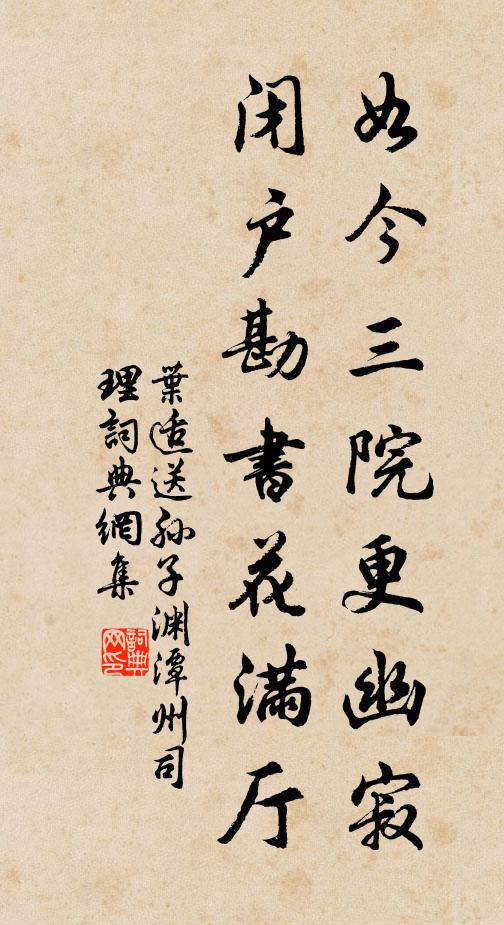 如今三院更幽寂
闭户勘書花满厅
葉适送孙子渊潭州司
理詞典網集
詞典
网印